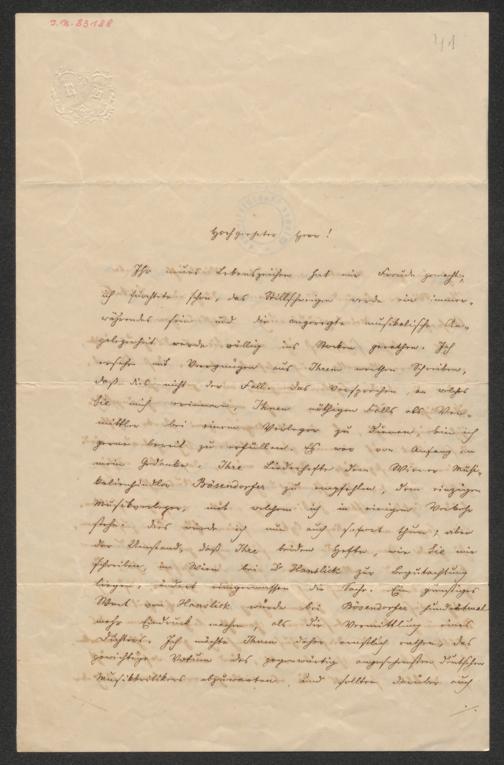 J.N. 83188
41
Hochgeehrter Herr!
Ihr neues Lebenszeichen hat mir Freude gemacht;
ich fürchtete schon, das Stillschweigen werde ein immer-
währendes sein und die angeregte musikalische An-
gelegenheit werde völlig ins Stocken gerathen. Ich
ersehe mit Vergnügen aus Ihrem werthen Schreiben,
daß dies nicht der Fall. Das Versprechen, an welches
Sie mich erinnern, Ihnen nöthigen Falls als Ver-
mittler bei einem Verleger zu dienen, bin ich
gerne bereit zu erfüllen. Es war von Anfang an
mein Gedanke, Ihre Liederhefte dem Wiener Musi-
kalienhändler Bösendorfer zu empfehlen, dem einzigen
Musikverleger, mit welchem ich in einigem Verkehr
stehe. Dies würde ich nun auch sofort thun; aber
der Umstand, daß Ihre beiden Hefte, wie Sie mir
schreiben, in Wien bei Dr Hanslick zur Begutachtung
liegen, ändert einigermassen die Sache. Ein günstiges
Wort von Hanslick würde bei Bösendorfer hundertmal
mehr Eindruck machen, als die Vermittlung eines
Dichters. Ich möchte Ihnen daher ernstlich rathen, das
gewichtige Votum des gegenwärtig angesehensten deutschen
Musikkritikers abzuwarten, und sollten darüber auch